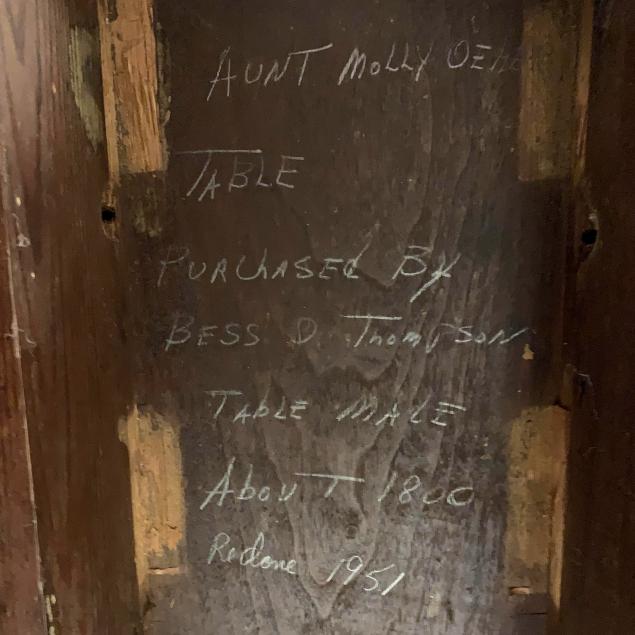 AUNT MOLLY
TABLE
PURCHASED By
BESS D. THOMPSON
TABLE MADE
About 1800
Redone 1951